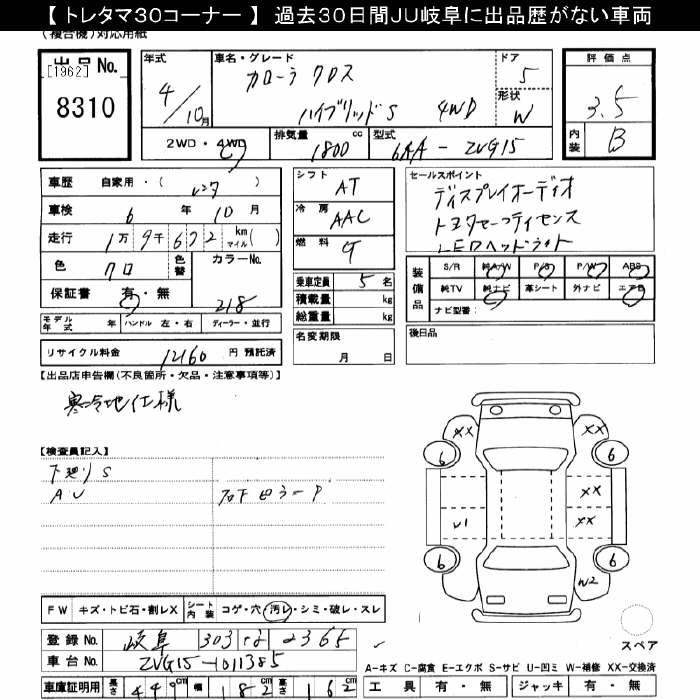 【トレタマ30コーナー】 過去30日間JU岐阜に出品歴がない車両
(複合機)対応用紙
出品No. [1962] 8310
年式 4/10月
車名・グレード カローラ クロス ハイブリッドS 4WD
ドア 5
形状 W
評価点 3.5
内装 B
2WD・4WD
排気量 1800 cc
型式 6AA - ZVG15
車歴 自家用・( レンタ )
車検 6年10月
走行 1万9千672 km マイル( )
色 クロ 色替
カラーNo. 218
保証書 有・無
シフト AT
冷房 AAC
燃料 G
乗車定員 5名
積載量 kg
総重量 kg
名変期限 月 日
セールスポイント
ディスプレイオーディオ
トヨタセーフティセンス
LEDヘッドライト
装備品 S/R 純A/W P/S P/W ABS
純TV 純ナビ 革シート 外ナビ エアB
ナビ型番:
後日品
モデル年式 年 ハンドル 左・右 ディーラー・並行
リサイクル料金 12160 円 預託済
【出品店申告欄(不良箇所・欠品・注意事項等)】
寒冷地仕様
【検査員記入】
下廻りS
AU
XX
XX
XX
XX
U1
W2
6
6
6
6
FW キズ・トビ石・割レX シート内装 コゲ・穴・汚レ・シミ・破レ・スレ
登録No. 岐阜 303 は 2365
車台No. ZVG15-1011385
車庫証明用 長さ 449cm 幅 182cm 高さ 162cm
スペア
A-キズ C-腐食 E-エクボ S-サビ U-凹ミ W-補修 XX-交換済
工具 有・無 ジャッキ 有・無